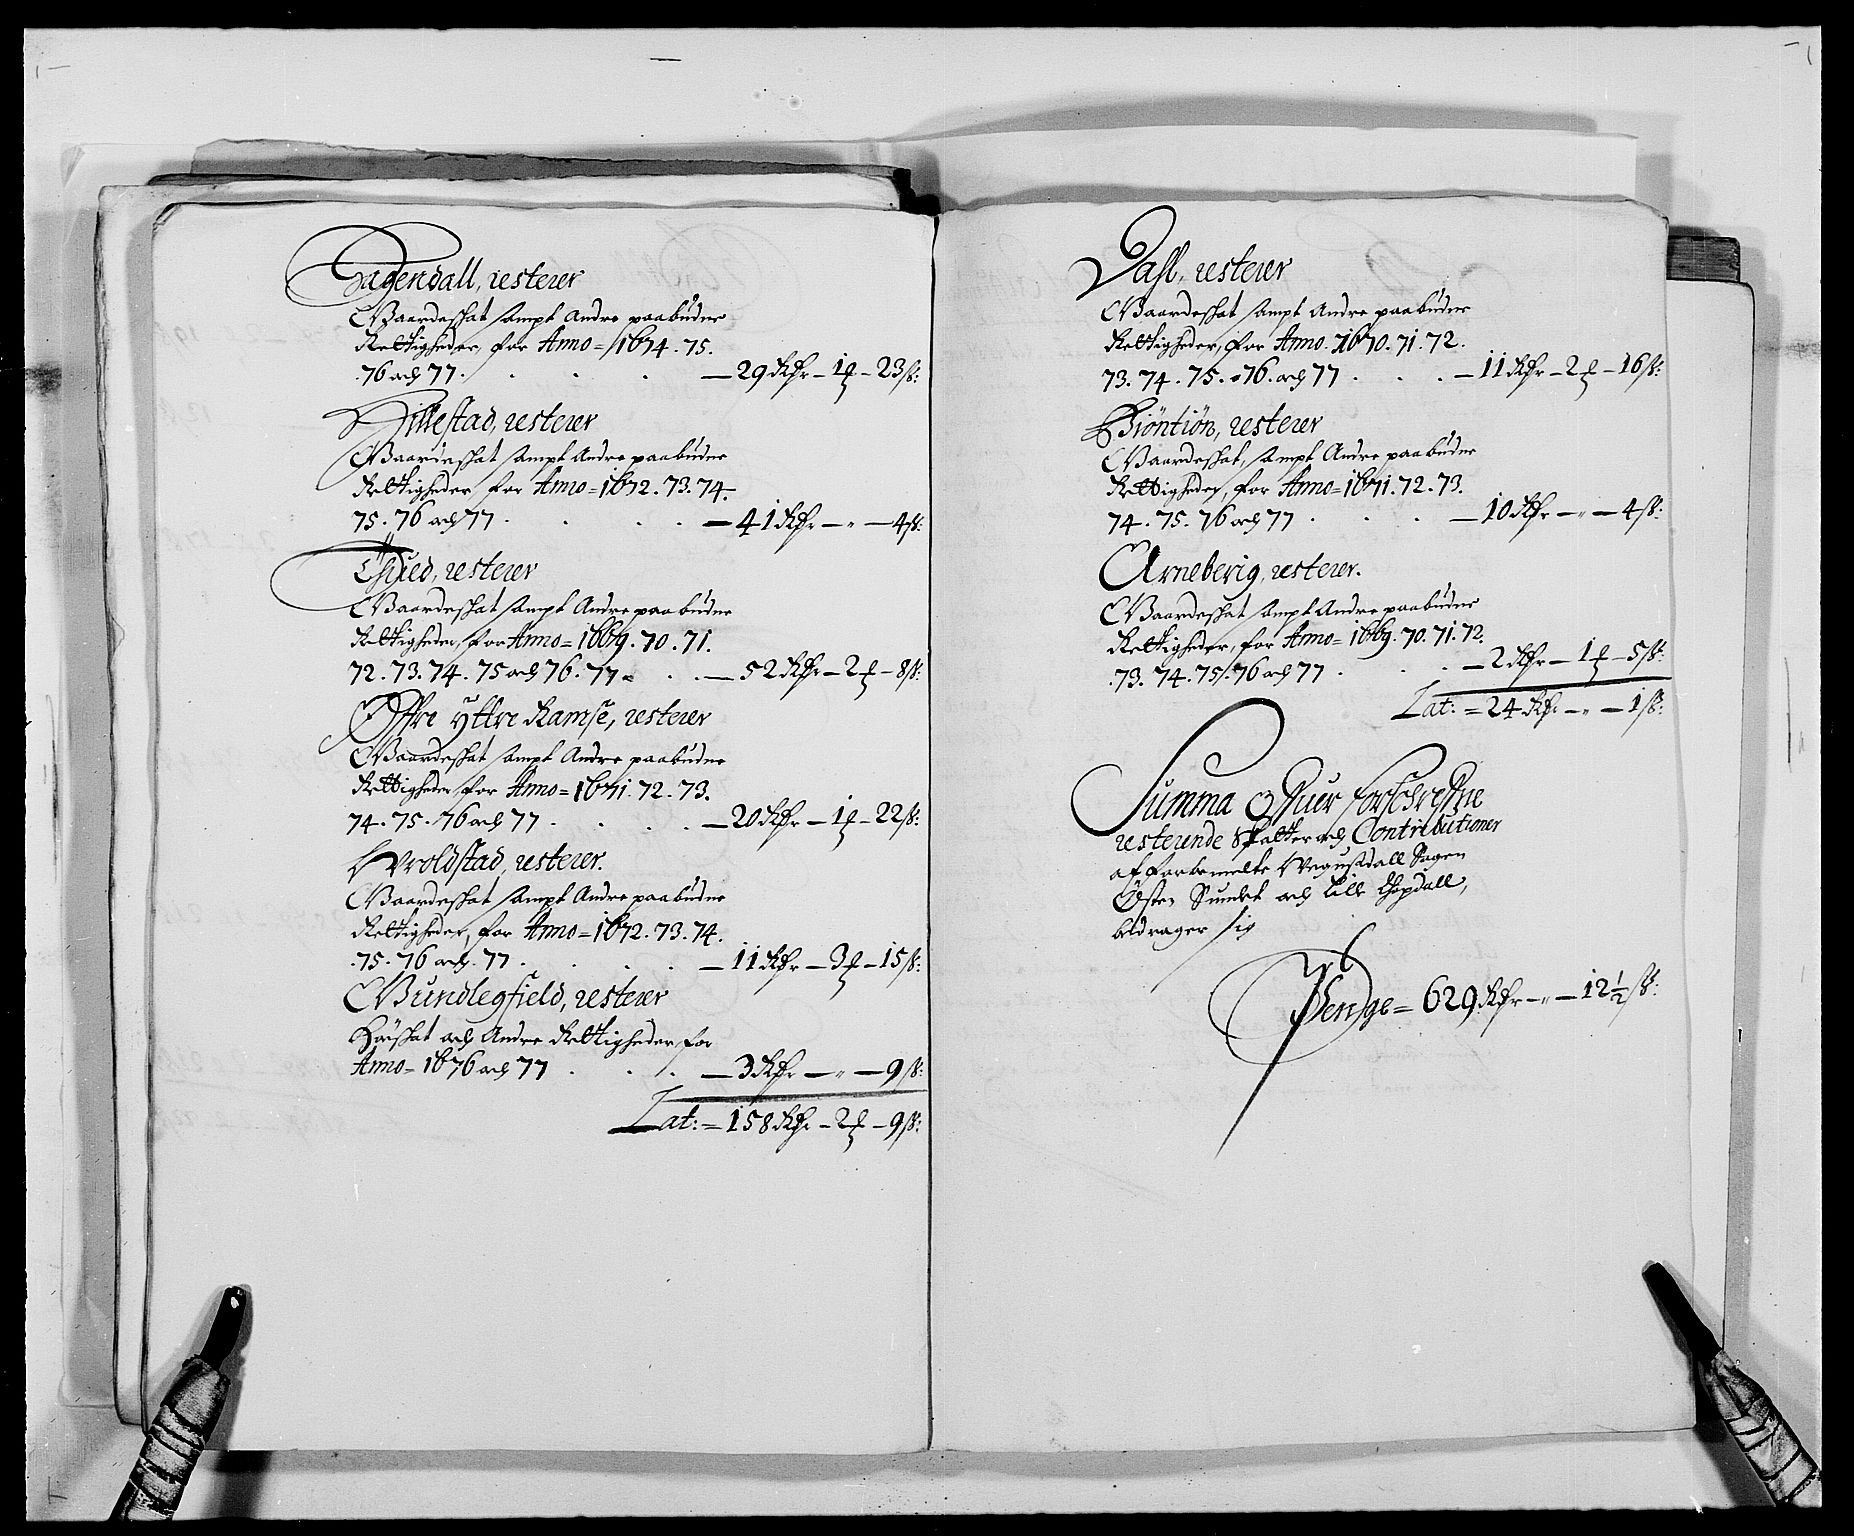 Hagendall, resterer
Gaardeskat sampt Andre paabudne
Rettigheder, for Anno = 1674. 75.
76 och 77. . . . — 29 Rdr — 1 ꝑ — 23 ß:
Hillestad, resterer
Gaardeskat sampt Andre paabudne
Rettigheder, for Anno = 1672. 73. 74.
75. 76 och 77 . . . . — 41 Rdr — „ — 4 ß:
resterer
Gaardeskat sampt Andre paabudne
Rettigheder, for Anno = 1669. 70. 71.
72. 73. 74. 75 och 76. 77 . . — 52 Rdr — 2 ꝑ — 8 ß:
Øfre Yttre Ramse, resterer
Gaardeskat sampt Andre paabudne
Rettigheder for Anno = 1671. 72. 73.
74. 75. 76 och 77 . . . . — 20 Rdr — 1 ꝑ — 22 ß:
Wroldstad, resterer.
Gaardeskat sampt Andre paabudne
Rettigheder, for Anno = 1672. 73. 74.
75. 76 och. 77 . . . . — 11 Rdr — 3 ꝑ — 15 ß:
Gundlegfield, resterer
och Andre Rettigheder for
Anno = 1676 och 77 . . . — 3 Rdr — „ — 9 ß:
Lat: = 158 Rdr — 2 ꝑ — 9 ß:
Dahl, resterer
Gaardeskat sampt Andre paabudne
Rettigheder, for Anno. 1670. 71. 72.
73. 74. 75. 76. och 77 . . . — 11 Rdr — 2 ꝑ — 16 ß:
Biöntiön, resterer
Gaardeskat, sampt Andre paabudne
Rettigheder, for Anno = 1671. 72. 73.
74. 75. 76 och 77 . . . — 10 Rdr — „ — 4 ß:
Arneberig, resterer.
Gaardeskat sampt Andre paabudne
Rettigheder, for Anno = 1669. 70. 71. 72.
73. 74. 75. 76 och 77 . . . — 2 Rdr — 1 ꝑ — 5 ß:
Lat: = 24 Rdr — „ — 1 ß:
Summa Ofuer forschrefne
resterende Skatter och Contributioner
af forbemelte Wegusdall Sogen
Østen Sundet och Lille Topdall,
bedrager sig
Penge = 629 Rdr — „ — 12 ½ ß: